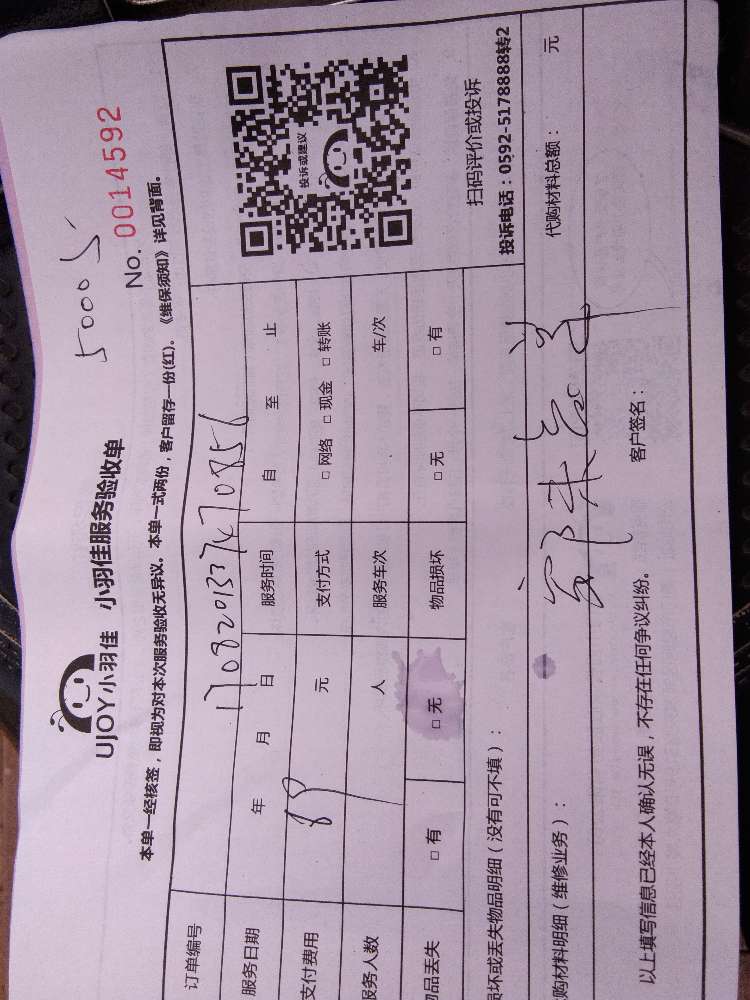 50005
UJOY小羽佳 小羽佳服务验收单
No. 0014592
本单一经核签，即视为对本次服务验收无异议。本单一式两份，客户留存一份(红)。《维保须知》详见背面。
订单编号 17082013374708561
服务日期 年 月 日 服务时间 自 至 止
支付费用 89 元 支付方式 □ 网络 □ 现金 □ 转账
服务人数 人 服务车次 车/次
物品丢失 □ 有 □ 无 物品损坏 □ 无 □ 有
投诉或建议
扫码评价或投诉
投诉电话：0592-5178888转2
损坏或丢失物品明细（没有可不填）：
购材料明细（维修业务）： 代购材料总额： 元
以上填写信息已经本人确认无误，不存在任何争议纠纷。 客户签名：